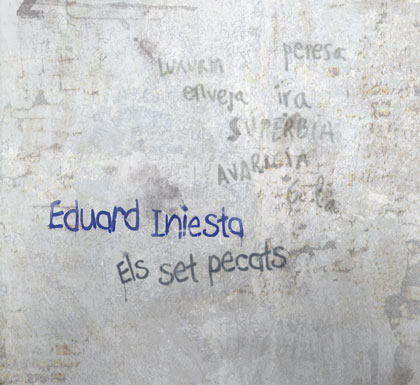 peresa
LUXURIA
enveja ira
SUPERBIA
AVARICIA
Gola
Eduard Iniesta
Els set pecats